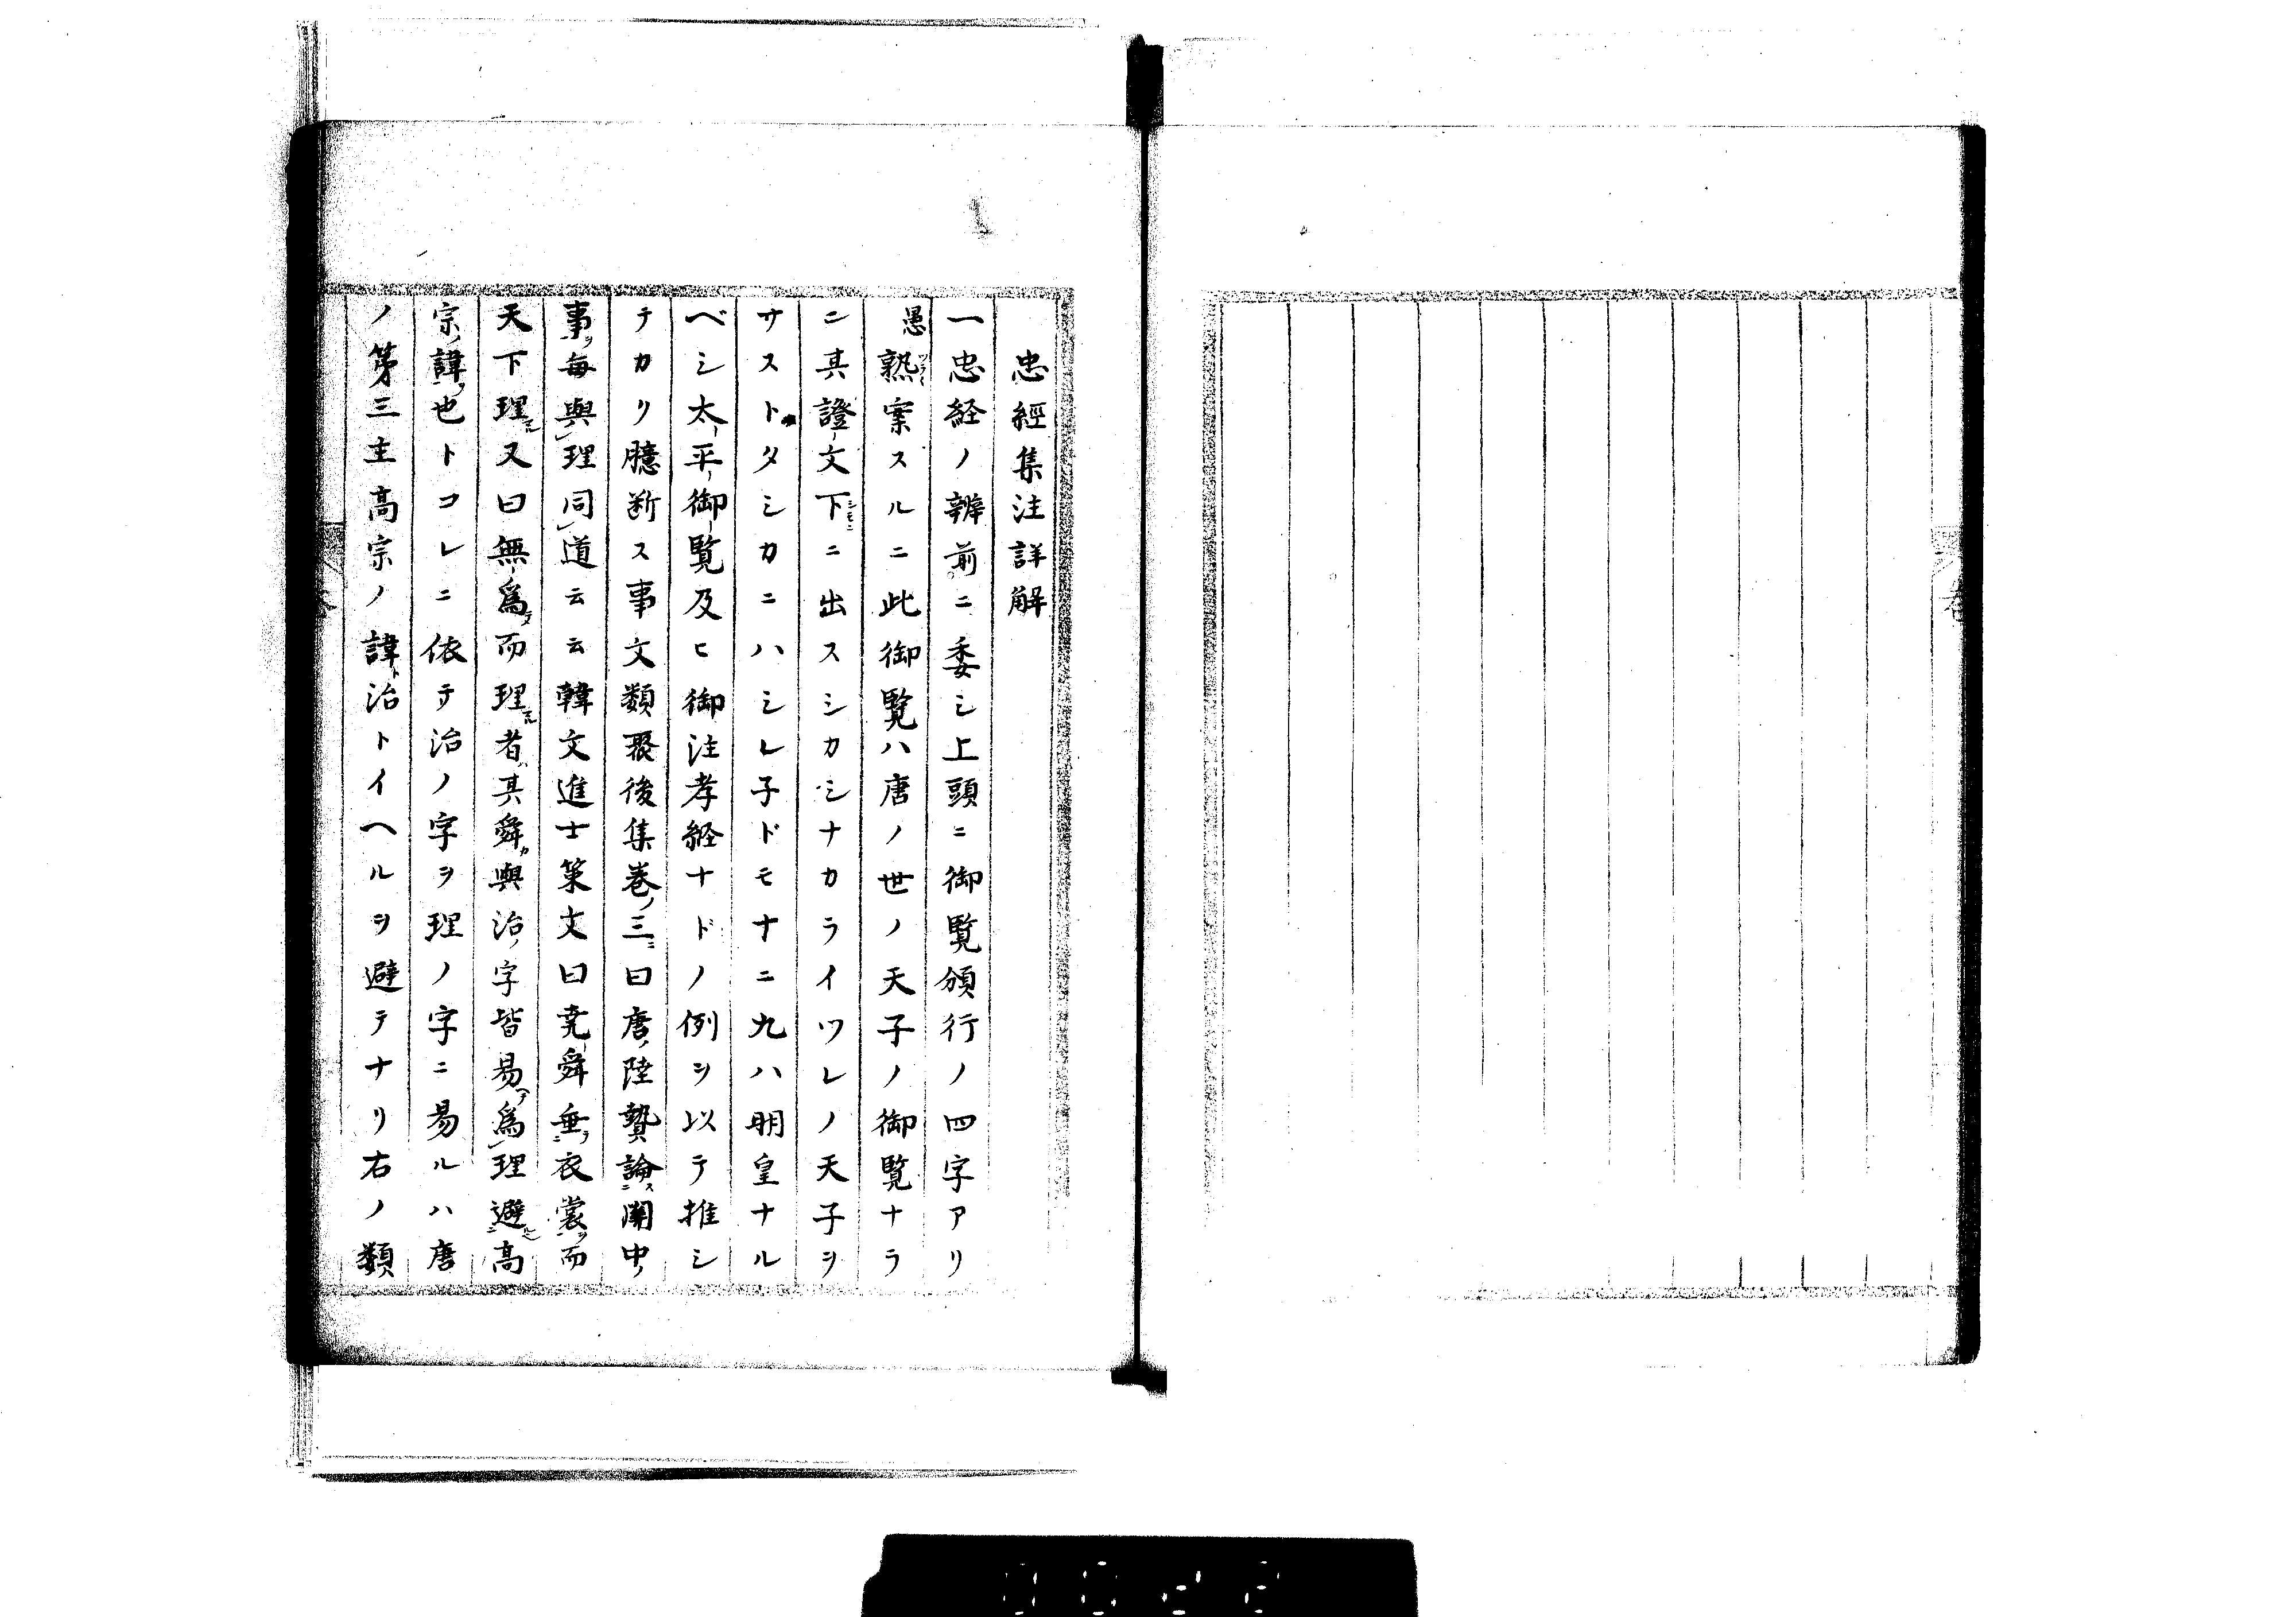 忠經集注詳解
一忠経ノ辨前ニ委シ上頭ニ御覽頒行ノ四字アリ
愚熟案スルニ此御覽ハ唐ノ世ノ天子ノ御覽ナラ
ニ其證文下ニ出スシカシナカライツレノ天子ヲ
サストタシカニハシレ子ドモナニ九ハ明皇ナル
ベシ太平御覽及ヒ御注孝経ナドノ例ヲ以テ推シ
テカリ臆断ス事文類聚後集巻ノ三ニ曰唐ノ陸贄論ス関中ノ
事ヲ毎與理同道云云韓文進士策文曰尭舜垂衣裳ヲ而
天下理又曰無爲而理者其舜與治ノ字皆易爲理避高
宗ノ諱ヲ也トコレニ依テ治ノ字ヲ理ノ字ニ易ルハ唐
ノ第三主高宗ノ諱治トイヘルヲ避テナリ右ノ類